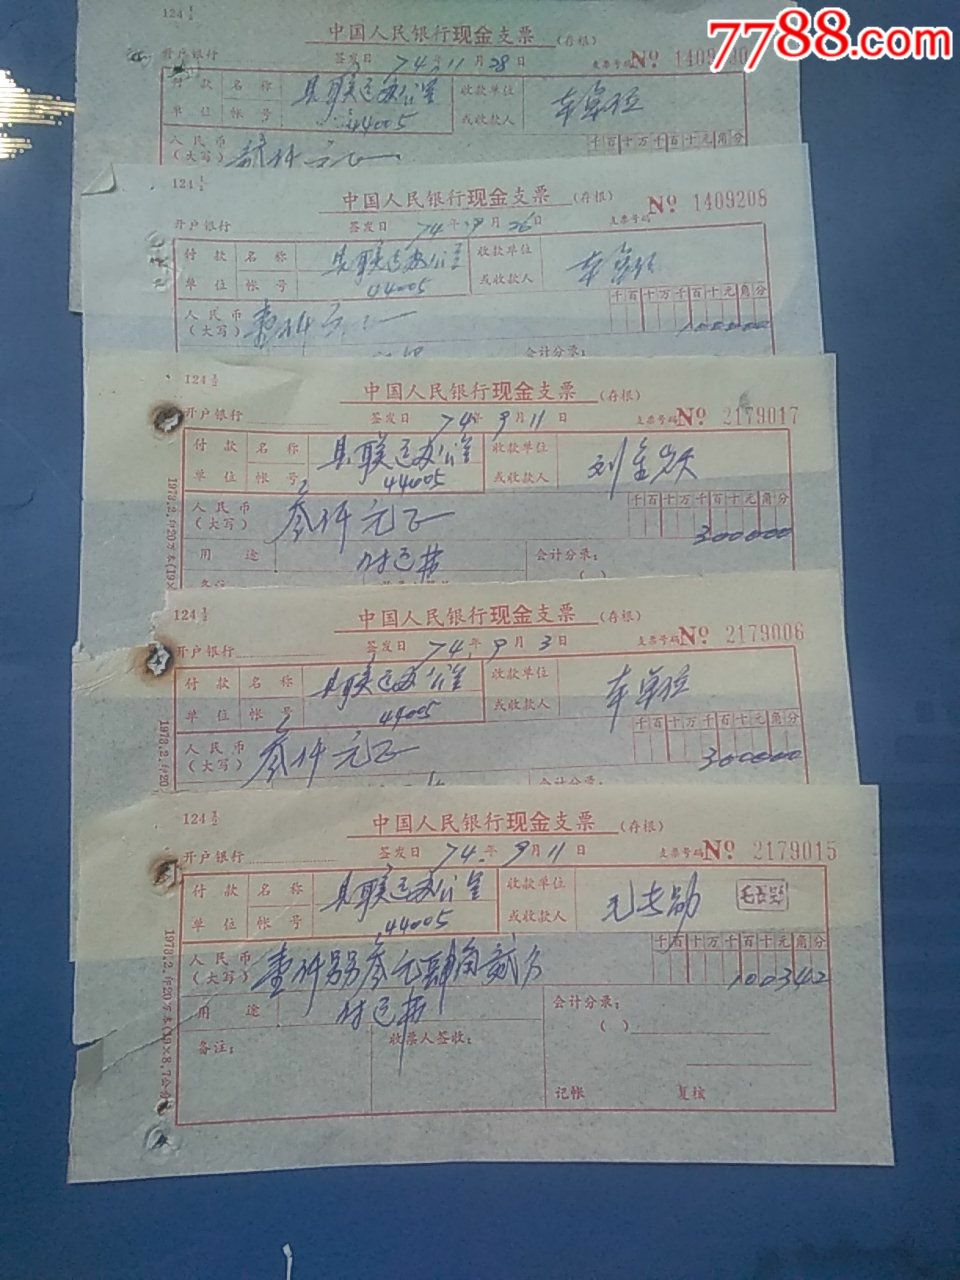 7788.com
124½
中国人民银行现金支票(存根)
开户银行 签发日 74年11月28日 支票号码 №
付款单位 名称 县联运办公室 收款单位或收款人 本单位
帐号 44005
人民币(大写) 千百十万千百十元角分
124½
中国人民银行现金支票(存根)
开户银行 签发日 74年9月26日 支票号码 № 1409208
付款单位 名称 县联运办公室 收款单位或收款人 本单位
帐号 44005
人民币(大写) 壹仟元正 千百十万千百十元角分
100000
会计分录:
124½
中国人民银行现金支票(存根)
开户银行 签发日 74年9月11日 支票号码 № 2179017
付款单位 名称 县联运办公室 收款单位或收款人
帐号 44005
人民币(大写) 叁仟元正 千百十万千百十元角分
300000
用途 付运费 会计分录:
备注: ( )
124½
中国人民银行现金支票(存根)
开户银行 签发日 74年9月3日 支票号码 № 2179006
付款单位 名称 县联运办公室 收款单位或收款人 本单位
帐号 44005
人民币(大写) 叁仟元正 千百十万千百十元角分
300000
124½
中国人民银行现金支票(存根)
开户银行 签发日 74年9月11日 支票号码 № 2179015
付款单位 名称 县联运办公室 收款单位或收款人
帐号 44005
人民币(大写) 壹仟另另叁元肆角贰分 千百十万千百十元角分
100342
用途 付运费 会计分录:
( )
备注: 收票人签收:
记帐 复核